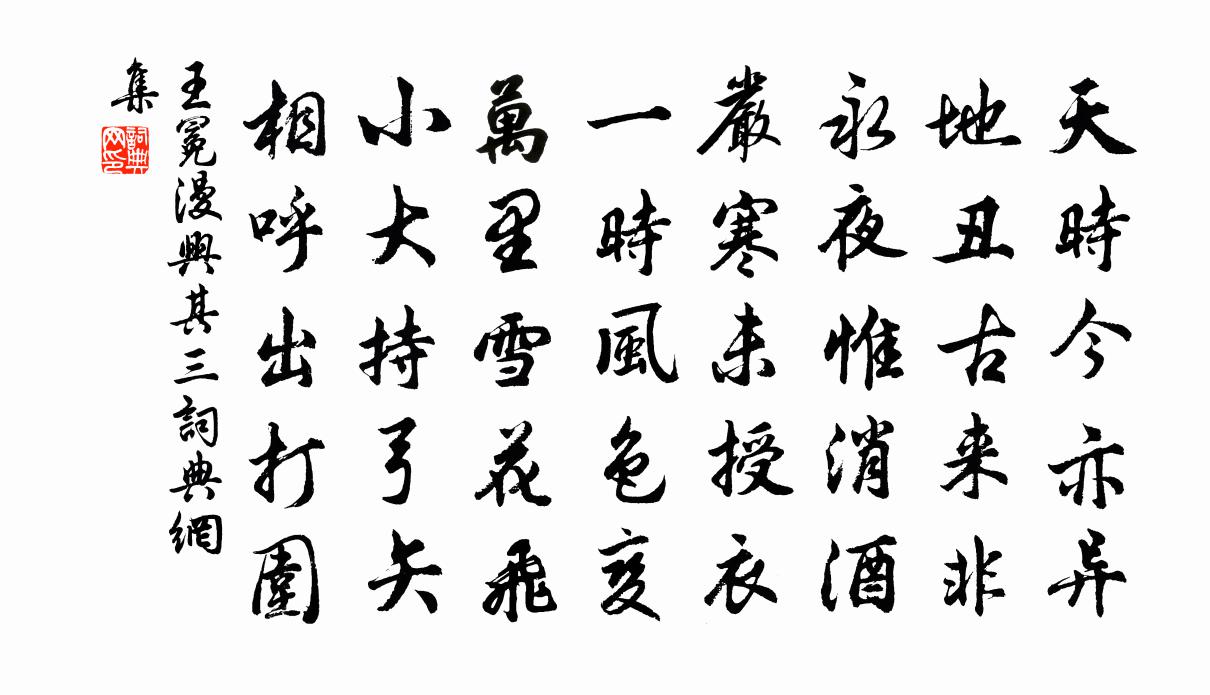 天時今亦异
地丑古来非
永夜惟消酒
嚴寒未授衣
一時風色变
萬里雪花飛
小大持弓矢
相呼出打圍
王冕漫興其三詞典網
集
詞典网印